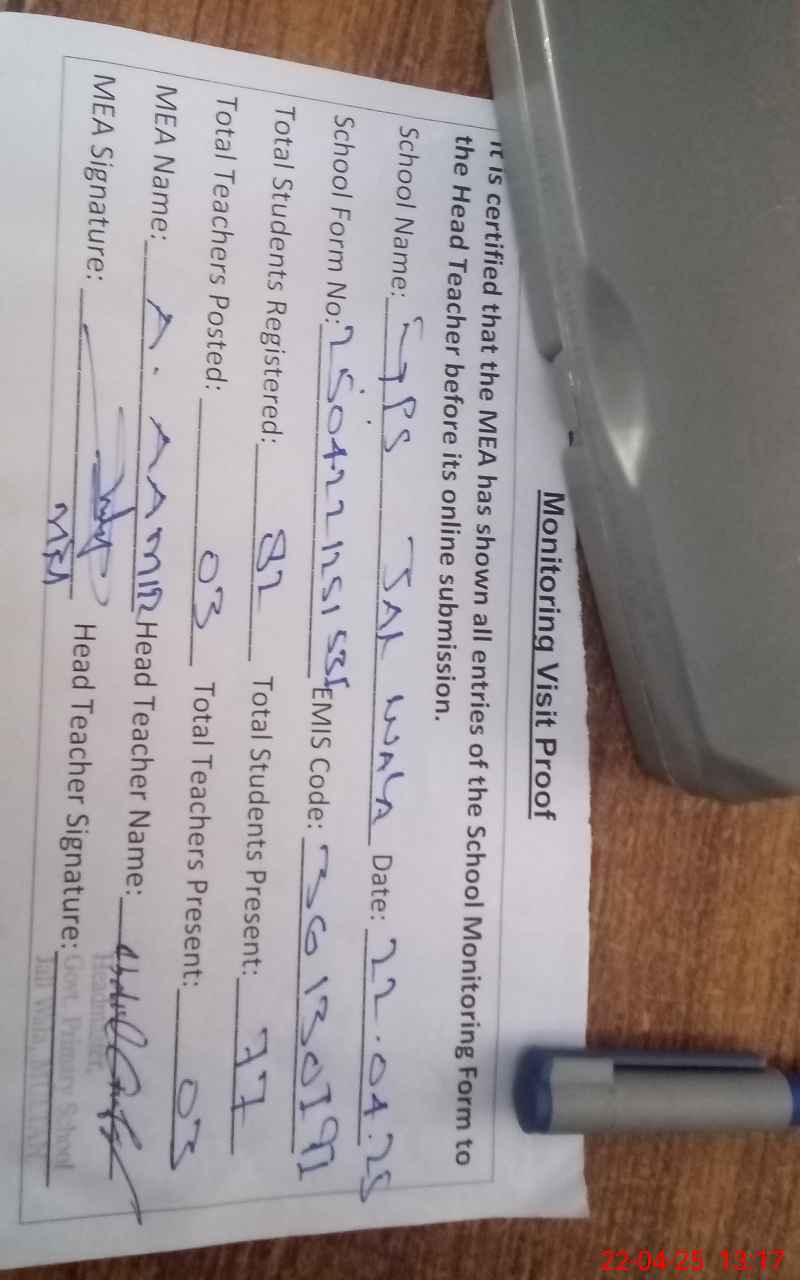 Monitoring Visit Proof
It is certified that the MEA has shown all entries of the School Monitoring Form to
the Head Teacher before its online submission.
School Name: GPS JALI WALA Date: 22.04.25
School Form No: EMIS Code:
Total Students Registered: 82 Total Students Present: 77
Total Teachers Posted: 03 Total Teachers Present: 03
MEA Name: A. AAMIR Head Teacher Name:
MEA Signature: MEA Head Teacher Signature:
Headmaster,
Govt. Primary School
Jali Wala, MULTAN
22-04-25 13:17